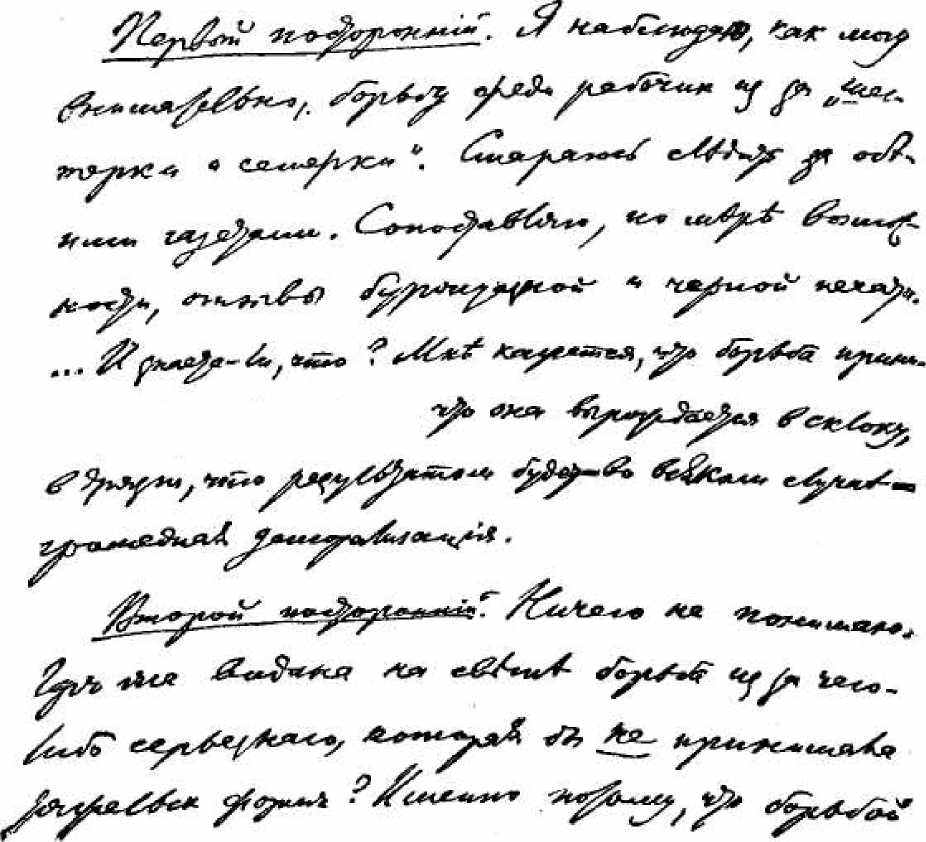 Первый посторонній. Я наблюдаю, как могу
внимательно, борьбу среди рабочих из за „шес-
терки и семерки“. Стараюсь слѣдить за обѣ-
ими газетами. Сопоставляю, по мѣрѣ возмож-
ности, отзывы буржуазной и черной печати.
... И знаете-ли, что? Мнѣ кажется, что борьба прини-
что она вырождается в склоку,
в дрязги, что результатом будет во всяком случаѣ
громадная деморализація.
Второй посторонній. Ничего не понимаю.
Гдѣ же видана на свѣтѣ борьба из за чего-
либо серьезнаго, которая бы не принимала
тяжелых форм? Именно потому, что борьбой